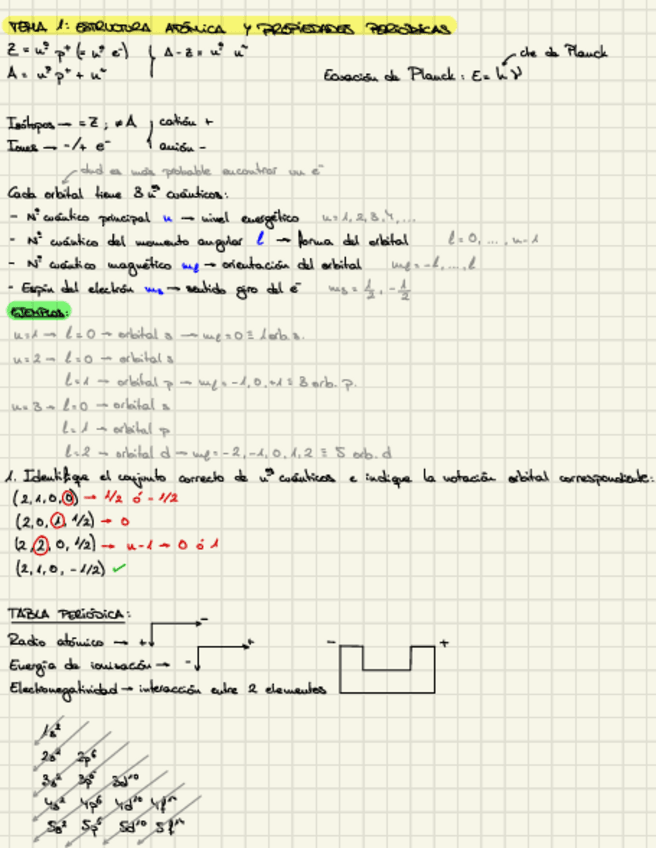 TEMA 1: ESTRUCTURA ATÓMICA Y PROPIEDADES PERIÓDICAS
Z = nº p⁺ (= nº e⁻) } A - Z = nº n⁻
A = nº p⁺ + n⁻
cte de Planck
Ecuación de Planck: E = hν
Isótopos → = Z ; ≠ A } catión +
Iones → -/+ e⁻ } anión -
dnd es más probable encontrar un e⁻
Cada orbital tiene 3 nº cuánticos:
- Nº cuántico principal n → nivel energético n = 1, 2, 3, 4, ...
- Nº cuántico del momento angular l → forma del orbital l = 0, ..., n-1
- Nº cuántico magnético mℓ → orientación del orbital mℓ = -l, ..., l
- Espín del electrón ms → sentido giro del e⁻ ms = 1/2, -1/2
EJEMPLOS:
n = 1 → l = 0 → orbital s → mℓ = 0 ≡ 1 orb. s.
n = 2 → l = 0 → orbital s
l = 1 → orbital p → mℓ = -1, 0, +1 ≡ 3 orb. p.
n = 3 → l = 0 → orbital s
l = 1 → orbital p
l = 2 → orbital d → mℓ = -2, -1, 0, 1, 2 ≡ 5 orb. d
1. Identifique el conjunto correcto de nºs cuánticos e indique la notación orbital correspondiente:
(2, 1, 0, 0) → 1/2 ó - 1/2
(2, 0, 1, 1/2) → 0
(2, 2, 0, 1/2) → n-1 → 0 ó 1
(2, 1, 0, -1/2) ✓
TABLA PERIÓDICA:
Radio atómico → + -
Energía de ionización → - +
- +
Electronegatividad → interacción entre 2 elementos
1s²
2s² 2p⁶
3s² 3p⁶ 3d¹⁰
4s² 4p⁶ 4d¹⁰ 4f¹⁴
5s² 5p⁶ 5d¹⁰ 5f¹⁴